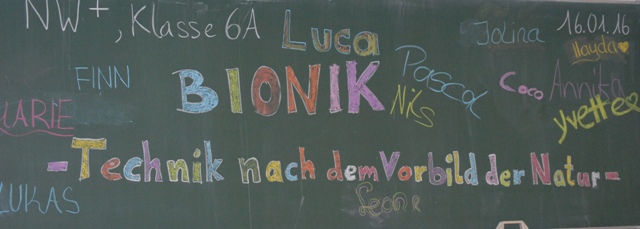 NW+, Klasse 6A
Luca
Jolina
16.01.16
Ilayda
FINN
BIONIK
Pascal
Nils
Coco
Annika
Yvette
MARIE
-Technik nach dem Vorbild der Natur-
LUKAS
Leonie